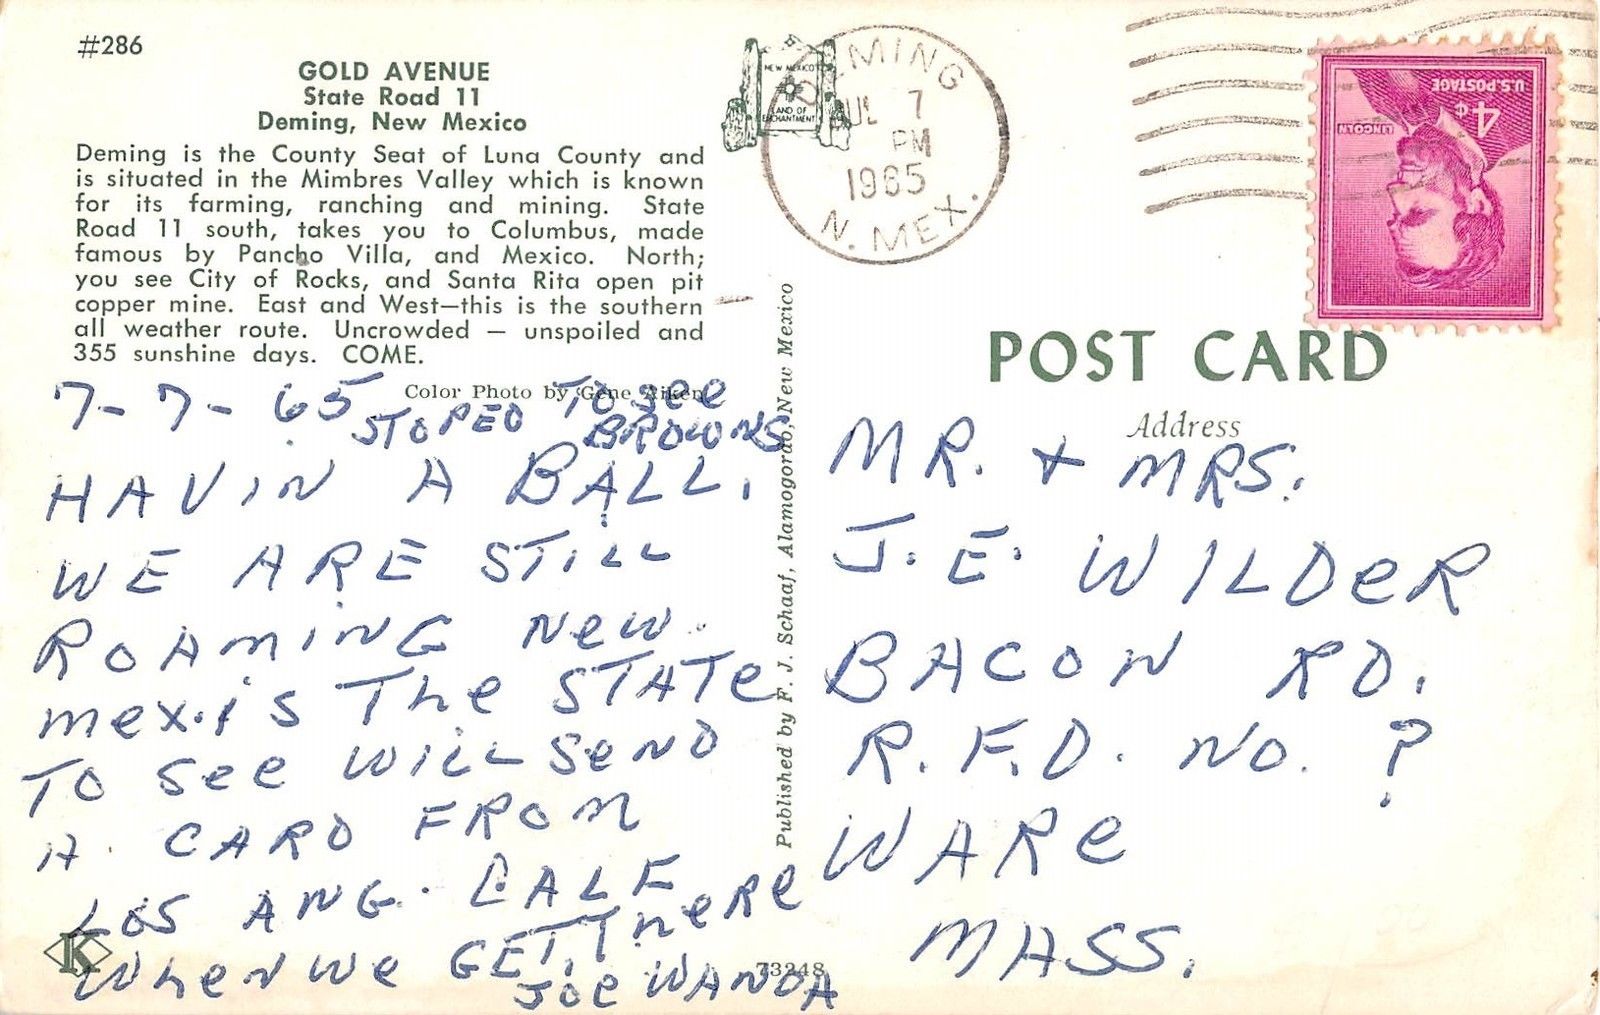 #286
GOLD AVENUE
State Road 11
Deming, New Mexico
Deming is the County Seat of Luna County and
is situated in the Mimbres Valley which is known
for its farming, ranching and mining. State
Road 11 south, takes you to Columbus, made
famous by Pancho Villa, and Mexico. North;
you see City of Rocks, and Santa Rita open pit
copper mine. East and West—this is the southern
all weather route. Uncrowded — unspoiled and
355 sunshine days. COME.
Color Photo by Gene Aiken
7-7-65 STOPED TO See
BROWNS
HAVIN A BALL.
WE ARE STILL
ROAMING New.
mex. is The STATe
TO See WILL SeND
A CARD FROM
LOS ANG. CALF
WheN We GET There
JOe WANDA
K
73248
Published by F. J. Schaaf, Alamogordo, New Mexico
NEW MEXICO
LAND OF
ENCHANTMENT
DEMING
JUL 7
PM
1965
N. MEX.
U.S. POSTAGE
4¢
LINCOLN
POST CARD
Address
MR. + MRS.
J. E. WILDeR
BACON RD.
R.F.D. NO. ?
WARe
MASS.